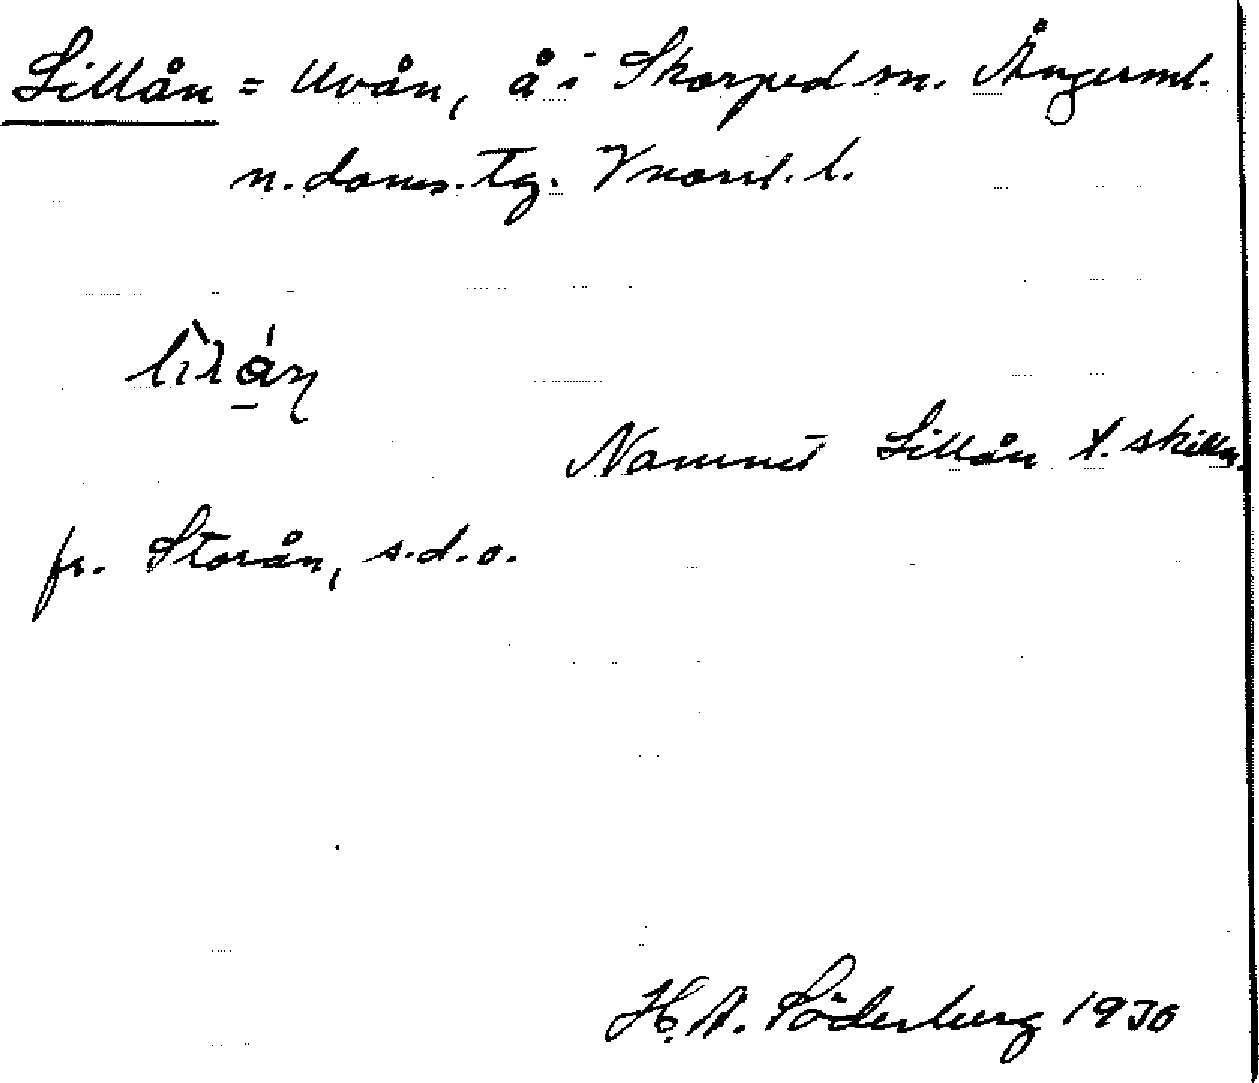 Lillån = Uvån, å i Skorped sn. Ångerml.
n. doms. tg. Vnorrl. l.
Namnet Lillån t. skilln.
fr. Storån, s.d.o.
H. A. Söderberg 1930